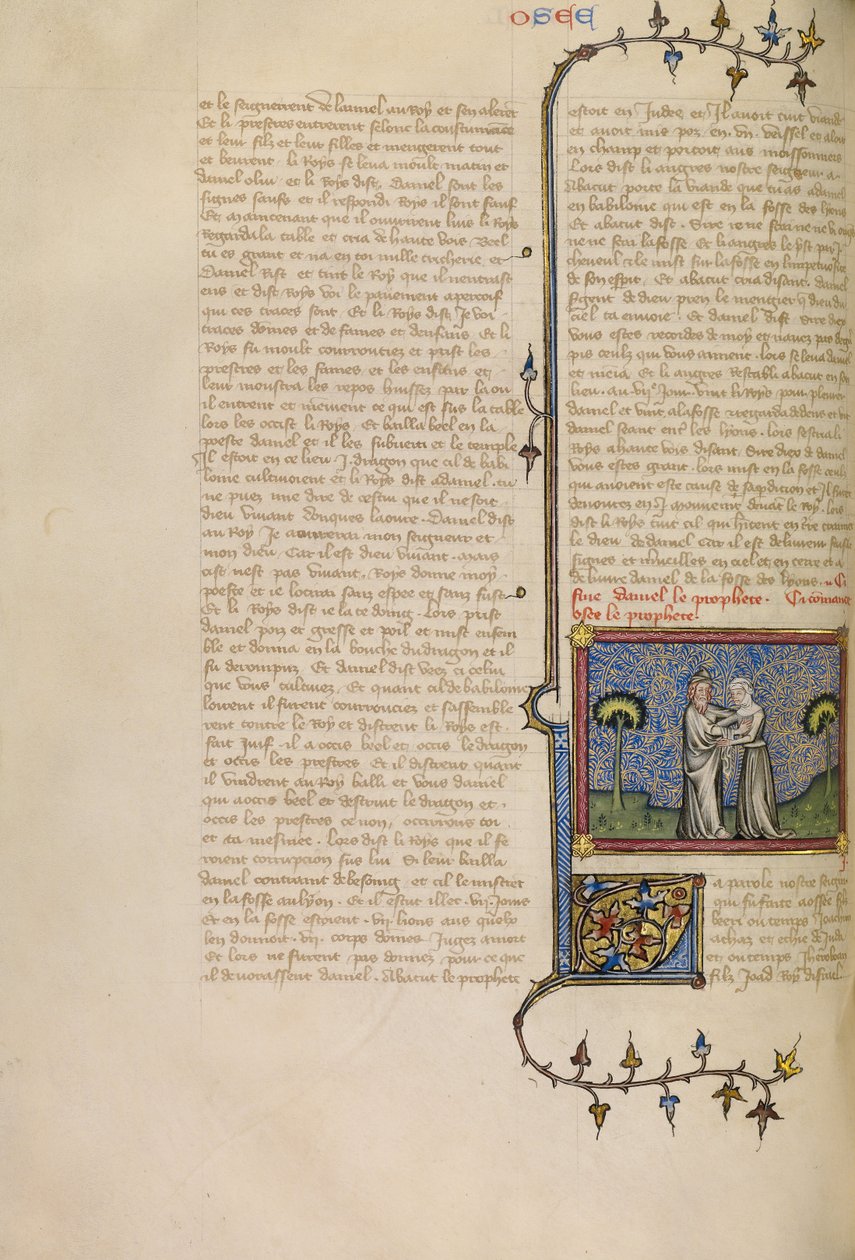 OSEE
et le seignerrent de lanel au Roy et sen alerent
Et li prestres entrerent selonc la coustumance
et leur filz et leur filles et mengerent tout
et beurent . li Roys se leva moult matin et
daniel o lui . et li Roys dist . Daniel sont les
signes saufs et il respondi Roys il sont sauf
Et maintenant que il ouvrirent luis li Roys
Regarda la table et cria de haute vois . Beel
tu es grant et na en toi nulle tricherie . et
Daniel Rist et tint le Roy que il nentrast
ens et dist Roys voi le pauement apercoif
qui ces traces sont . Et li Roys dist Je voi
traces domes et de fames et denfans . Et li
Roys fu moult courrouciez et prist les
prestres et les fames . et les enfans et
leur monstra les repos huissez par la ou
il entrent et mement ce qui est sus la table
lors les occist li Roys . Et bailla beel en la
poeste daniel et il les subverti et le temple
Il estoit en ce lieu .J. dragon que cil de babi
lome cultivoient et li Roys dist a daniel . tu
ne puez mie dire de cestui que il ne soit
dieu vivant donques laoure . Daniel dist
au Roy Je aourerai mon seigneur et
mon dieu . Car il est dieu vivant . mais
cist nest pas vivant . Roys donne moy
poeste et ie locirai sanz espee et sanz fust
Et li Roys dist ie la te doing . Lors prist
daniel poiz et gresse et poil et mist ensem
ble et donna en la bouche du dragon et il
fu derompuz . Et daniel dist veez ci celui
que vous cultivez . Et quant cil de babilone
loirent il furent courrouciez et sassemble
rent contre le Roy et distrent li Roys est
fait Juif . il a occis beel et occis le dragon
et occis les prestres . Et il distrent quant
il vindrent au Roy bailli et vous daniel
qui a occis beel et destruit le dragon et
occis les prestres ce non , occirrons toi
et ta mesniee . Lors dist li Roys que il fe
roient corrupcion sus lui Si leur bailla
daniel contraint de besoing . et cil le mistrent
en la fosse au lyon . Et il estut illec .vii. Jours
Et en la fosse estoient .vii. lions aus quelx
len donnoit .vii. corps domes Jugez a mort
Et lors ne furent pas donnez pour ce que
il devorassent daniel . Abacut le prophete
estoit en Judee et Il avoit cuit viande
et avoit mis pez en .vn. veissel et aloit
en champ et portoit aus moissonneurs
Lors dist li angres nostre seigneur a
Abacut porte la viande que tu as a daniel
en babilonie qui est en la fosse des lyons
Et abacut dist . Sire ie ne scai ne ne vi
ne ne scai la fosse . Et li angres le prist par .J.
cheveul et le mist sur la fosse en limpetuosite
de son esprit . Et abacut cria disant . daniel
sergent de dieu pren le mengier que dieu du
ciel ta envoie . Et daniel dist . Sire diex
vous estes recordes de moy et navez pas
pis ceulz qui vous aiment . lors se leva daniel
et menia . Et li angres Restabli abacut en son
lieu . au .vii.e Jour . vint li Roys pour plourer
daniel et vint a la fosse et regarda dedens et vit
daniel seant entre les lyons . lors sescria li
Roys a haute vois disant . Sire diex de daniel
vous estes grant . lors mist en la fosse ceulz
qui avoient este cause de sa perdicion et Il furent
devourez en .J. moument devant le Roy . Lors
dist li Roys tuit cil qui habitent en terre
le dieu de daniel Car il est delivreur faisant
signes et merveilles en ciel et en terre et a
delivre daniel de la fosse des lyons . Ci
fine daniel le prophete . Ci commance
osee le prophete .
a parole nostre seigneur
qui fu faite a osee filz
beeri ou temps Joachim
achaz et echie de Juda
et ou temps Jheroboam
filz Joad Roy disrael